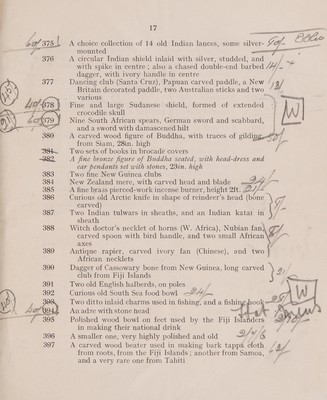 17
375 A choice collection of 14 old Indian lances, some silver-
mounted
376 A circular Indian shield inlaid with silver, studded, and
with spike in centre; also a chased double-end barbed
dagger, with ivory handle in centre
377 Dancing club (Santa Cruz), Papuan carved paddle, a New
Britain decorated paddle, two Australian sticks and two
various
378 Fine and large Sudanese shield, formed of extended
crocodile skull
379 Nine South African spears, German sword and scabbard,
and a sword with damascened hilt
380 A carved wood figure of Buddha, with traces of gilding,
from Siam, 28in. high
381 Two sets of books in brocade covers
382 A fine bronze figure of Buddha seated, with head-dress and
ear pendants set with stones, 23in. high
383 Two fine New Guinea clubs
384 New Zealand mere, with carved head and blade
385 A fine brass pierced-work incense burner, height 2ft.
386 Curious old Arctic knife in shape of reindeer's head (bone
carved)
387 Two Indian tulwars in sheaths, and an Indian katar in
sheath
388 Witch doctor's necklet of horns (W. Africa), Nubian fan,
carved spoon with bird handle, and two small African
axes
389 Antique rapier, carved ivory fan (Chinese), and two
African necklets
390 Dagger of Cassowary bone from New Guinea, long carved
club from Fiji Islands
391 Two old English halberds, on poles
392 Curious old South Sea food bowl
393 Two ditto inlaid charms used in fishing, and a fishing hook
394 An adze with stone head
395 Polished wood bowl on feet used by the Fiji Islanders
in making their national drink
396 A smaller one, very highly polished and old
397 A carved wood beater used in making bark tappa cloth
from roots, from the Fiji Islands; another from Samoa,
and a very rare one from Tahiti
W
W